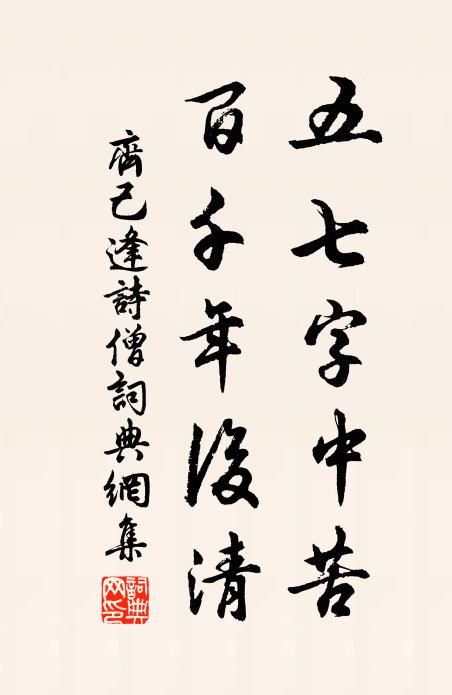 五七字中苦
百千年後清
齊己逢詩僧詞典網集
詞典
网印